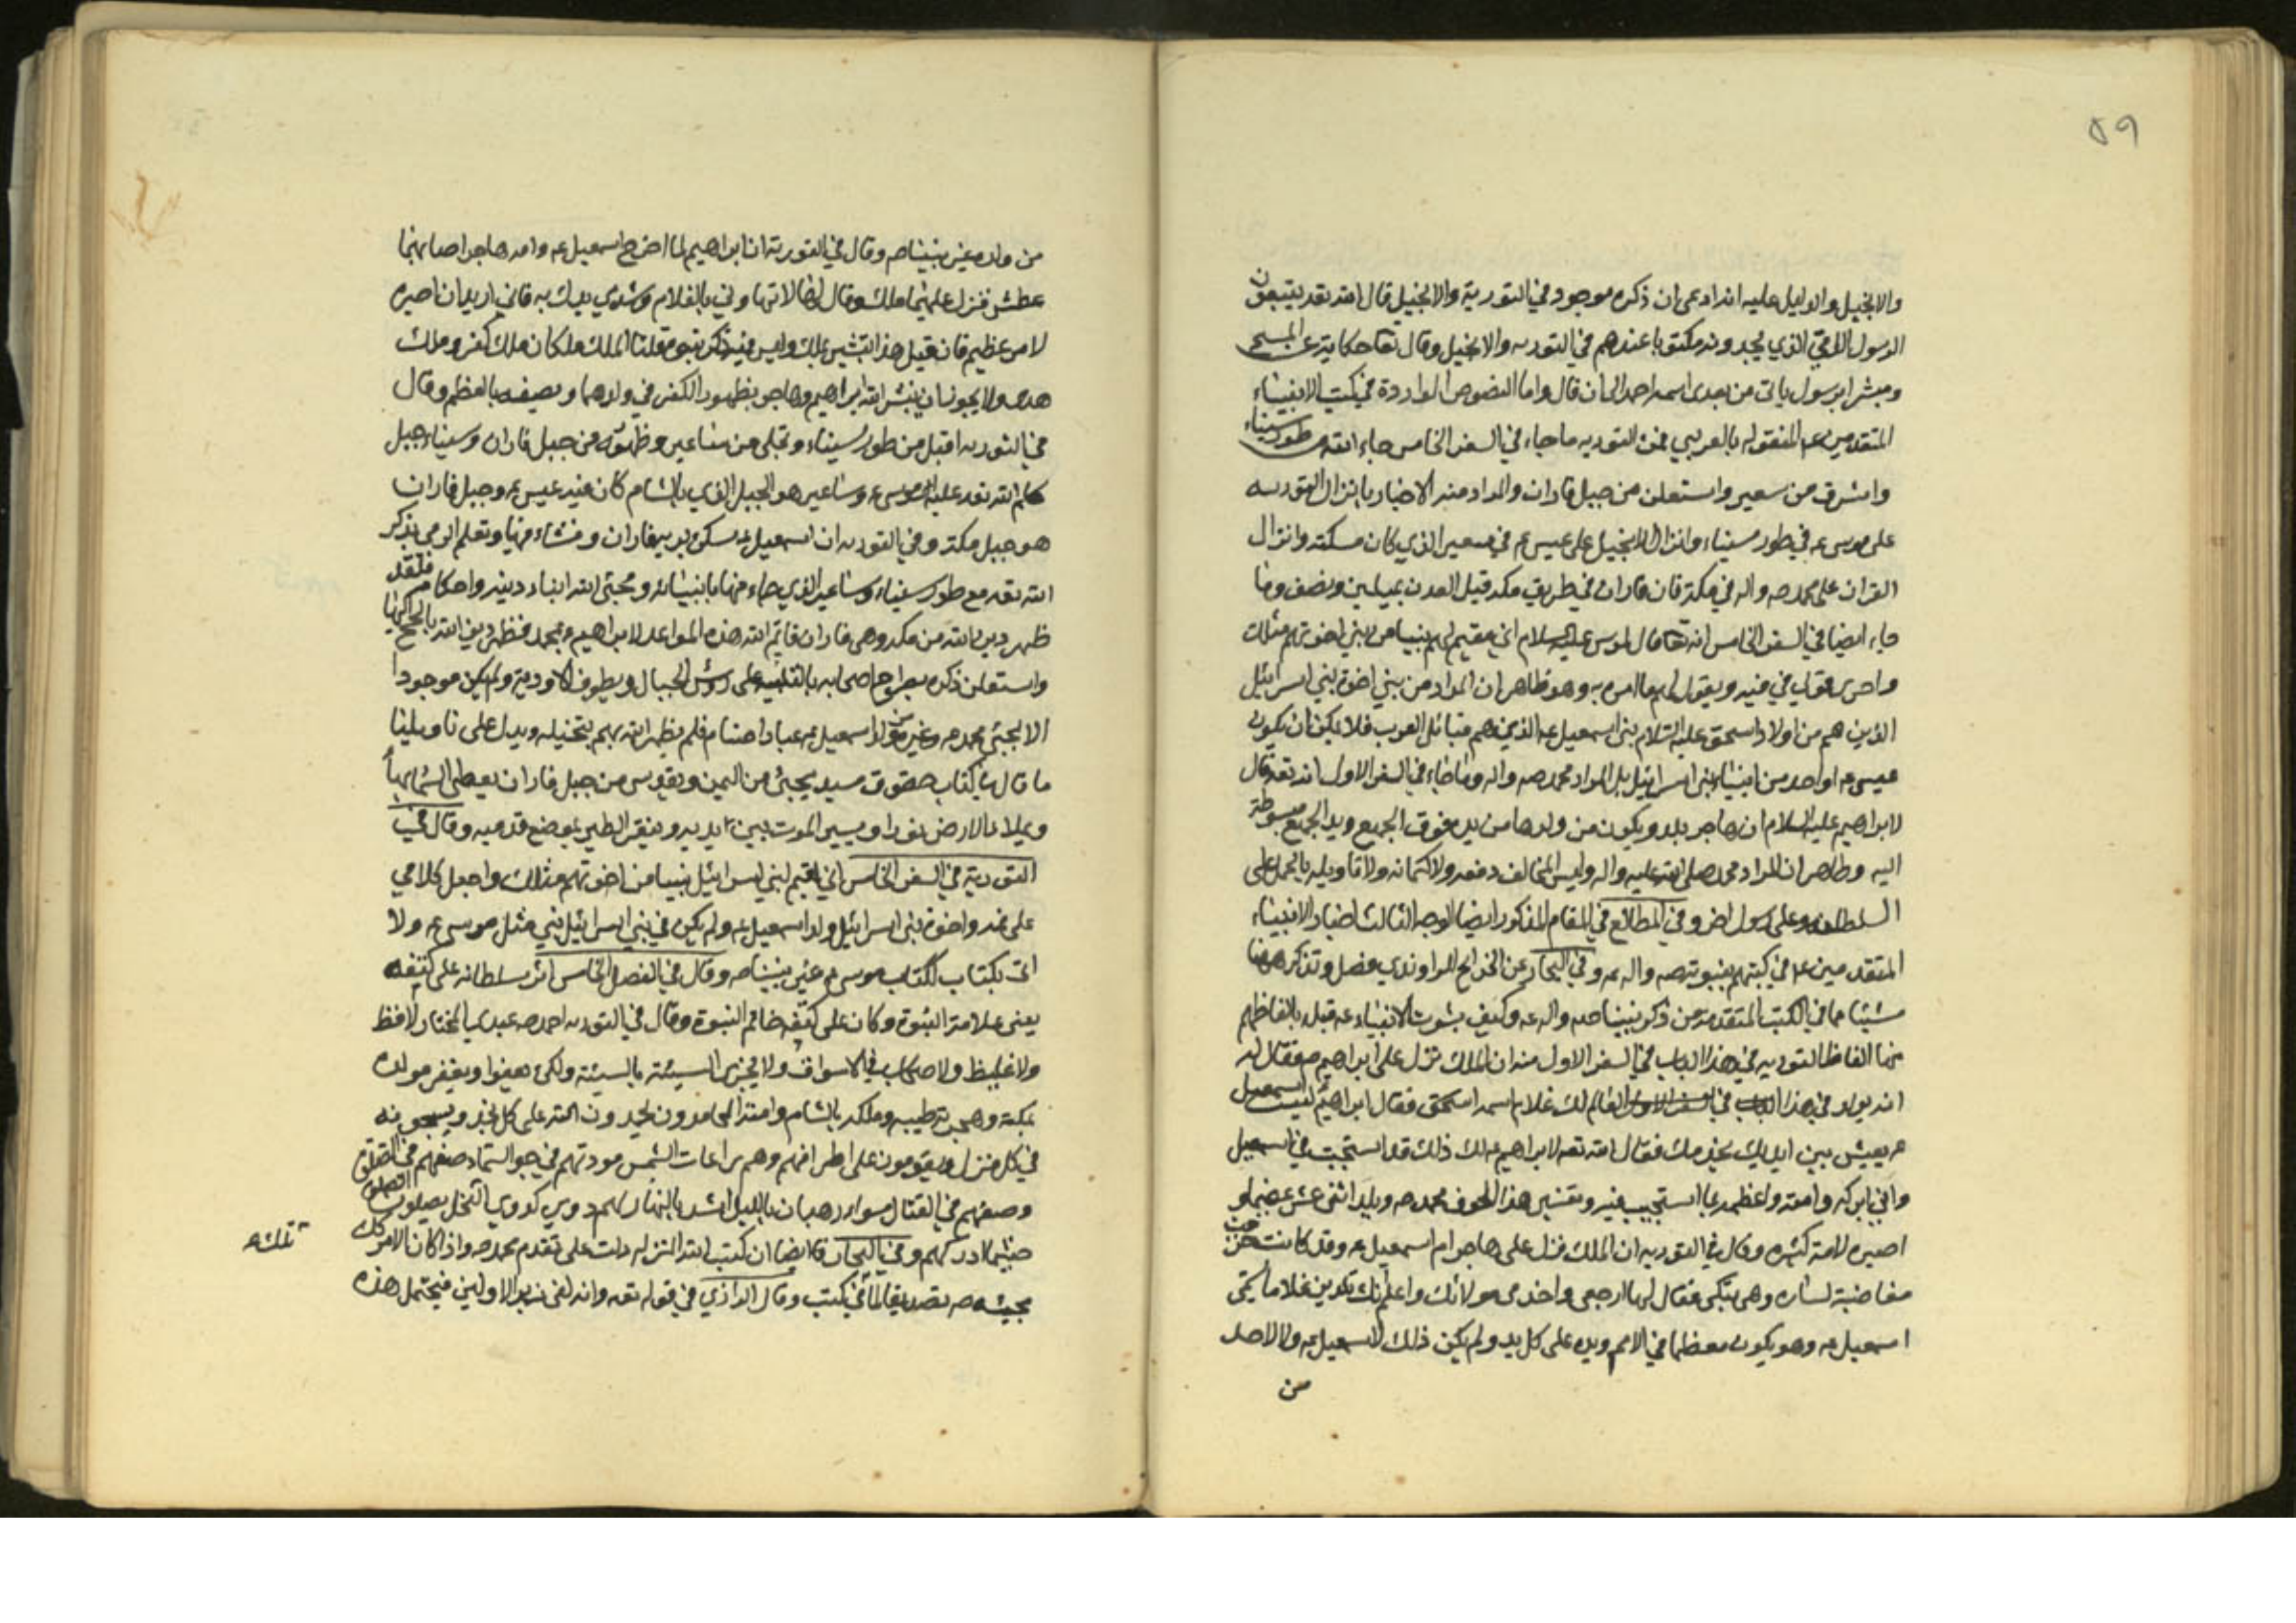 ٥٩
والانجيل والدليل عليه انه ادعى ان ذكره موجود في التورية والانجيل قال الله تعه يتبعون
الرسول الامي الذي يجدونه مكتوبا عندهم في التوريه والانجيل وقال تعا حكاية عن المسيح
ومبشرا برسول ياتي من بعدى اسمه احمد الى ان قال واما النصوص الواردة في كتب الانبياء
المتقدمين ع المنقوله بالعربي فمن التوريه ما جاء في السفر الخامس جاء الله من طور سيناء
واشرق من سعير واستعلن من جبل فاران والمراد منه الاخبار بانزال التوريه
على موسى ع في طور سيناء وانزال الانجيل على عيسى ع في سعير الذي كان مسكنه وانزال
القران على محمد ص واله في مكة فان فاران في طريق مكه قبل العدن بميلين ونصف وما
جاء ايضا في السفر الخامس انه تعا قال لموسى عليه السلام اني مقيم لهم نبيا من بني اخوتهم مثلك
واجرى قولي في فيه ويقول لهم ما امره به وهو ظاهر ان المراد من بني اخوة بني اسرائيل
الذين هم من اولاد اسحق عليه السلام بنى اسمعيل ع الذين هم قبائل العرب فلا يمكن ان يكون
عيسى ع او احد من انبياء بنى اسرائيل بل المراد محمد ص واله وما جاء في السفر الاول انه تعه قال
لابراهيم عليه السلام ان هاجر يلد ويكون من ولدها من يده فوق الجميع ويد الجميع مبسوطة
اليه وظاهر ان المراد محمد صلى الله عليه واله وليس للمخالف دفعه ولا كتمانه ولا تاويله بالحمل على
السلطان وعلى رسول اخر وفي المطالع في المقام المذكور ايضا الوجه الثالث اخبار الانبياء
المتقدمين ع في كتبهم بنبوته ص واله ع وفي البحار عن الخرايج للراوندي فصل وتذكر ههنا
شيئا مما في الكتب المتقدمة من ذكر نبينا ص واله ع وكيف بشرت الانبياء ع قبله بالفاظهم
منها الفاظ التوريه في هذا الباب في السفر الاول منه ان الملك نزل على ابراهيم ع فقال له
انه يولد في هذا العالم لك غلام اسمه اسحق فقال ابراهيم ليت اسمعيل
ع يعيش بين ايديك يخدمك فقال الله تعه لابراهيم ع لك ذلك قد استجبت في اسمعيل
واني ابركه وامنه واعظمه بما استجيب فيه وتفسير هذا الحرف محمد ص ويلد اثني عشر عظيما و
اصيره لامة كثيره وقال في التوريه ان الملك نزل على هاجر ام اسمعيل ع وقد كانت خرجت
مغاضبة لساره وهي تبكي فقال لها ارجعى واخدمى مولاتك واعلم انك تلدين غلاما يسمى
اسمعيل ع وهو يكون معظما في الامم ويده على كل يد ولم يكن ذلك لاسمعيل ع ولا لاحد
من
من ولده غير نبينا ص وقال في التورية ان ابراهيم لما اخرج اسمعيل ع وامه هاجر اصابهما
عطش فنزل عليهما ملك وقال لها لا تهاوني بالغلام وشدي يديك به فاني اريد ان اصيره
لامر عظيم فان قيل هذا تبشير بملك وليس فيه ذكر نبوة قلنا الملك ملكان ملك كفر وملك
هدى ولا يجوز ان يبشر الله ابراهيم وهاجر بظهور الكفر في ولدهما ويصفه بالعظم وقال
في التوريه اقبل من طور سيناء وتجلى من ساعير وظهر من جبل فاران وسيناء جبل
كلم الله تعه عليه موسى ع وساعير هو الجبل الذي بالشام كان فيه عيسى ع وجبل فاران
هو جبل مكة وفي التوريه ان اسمعيل ع سكن برية فاران ونشاء فيها وتعلم الرمى فذكر
الله تعه مع طور سيناء وساعير الذي جاء منها بانبيائه ومجئ الله اتيان دينه واحكامه فلقد
ظهر دين الله من مكه وهى فاران فاتم الله هذه المواعد لابراهيم ع بمحمد فظهر دين الله بالحج اليها
واستعلن ذكره بصراخ اصحابه بالتلبية على رؤس الجبال وبطون الاودية ولم يكن موجودا
الا بمجئ محمد ص وغير من ولد اسمعيل ع عباد اصنام فلم يظهر الله بهم تبجيله ويدل على تاويلنا
ما قال في كتاب حيقوق سيد يجئ من اليمن ويقدس من جبل فاران يغطى السماء بهاء
ويملاء الارض نورا ويسير الموت بين يديه وينقر الطير بموضع قدميه وقال في
التورية في السفر الخامس اني اقيم لبني اسرائيل نبيا من اخوتهم مثلك واجعل كلامي
على فمه واخوة بنى اسرائيل ولد اسمعيل ع ولم يكن في بني اسرائيل نبي مثل موسى ع ولا
اتى بكتاب ككتاب موسى ع غير نبينا ص وقال في الفصل الخامس اثر سلطانه على كتفه
يعنى علامة النبوة وكان على كتفه خاتم النبوة وقال في التوريه احمد ص عبدى المختار لا فظ
ولا غليظ ولا صخاب في الاسواق ولا يجزى السيئة بالسيئة ولكن يعفوا ويغفر مولده
بمكة وهجرته طيبه وملكه بالشام وامته الحامدون يحمدون الله على كل نجد ويسبحونه
في كل منزل ويقومون على اطرافهم وهم رعات الشمس مودتهم في جو السماء صفهم في الصلوة
وصفهم في القتال سواء رهبان بالليل اسد بالنهار لهم دوي كدوي النحل يصلون الصلوة
حيثما ادركهم وفي البحار قال ايضا ان كتب الله المنزلة دلت على تقدم محمد ص واذا كان الامر كذلك
مجيئه ص تصديقا لما في كتب وقال الرازي في قوله تعه وانه لفى زبر الاولين فيحتمل هذه